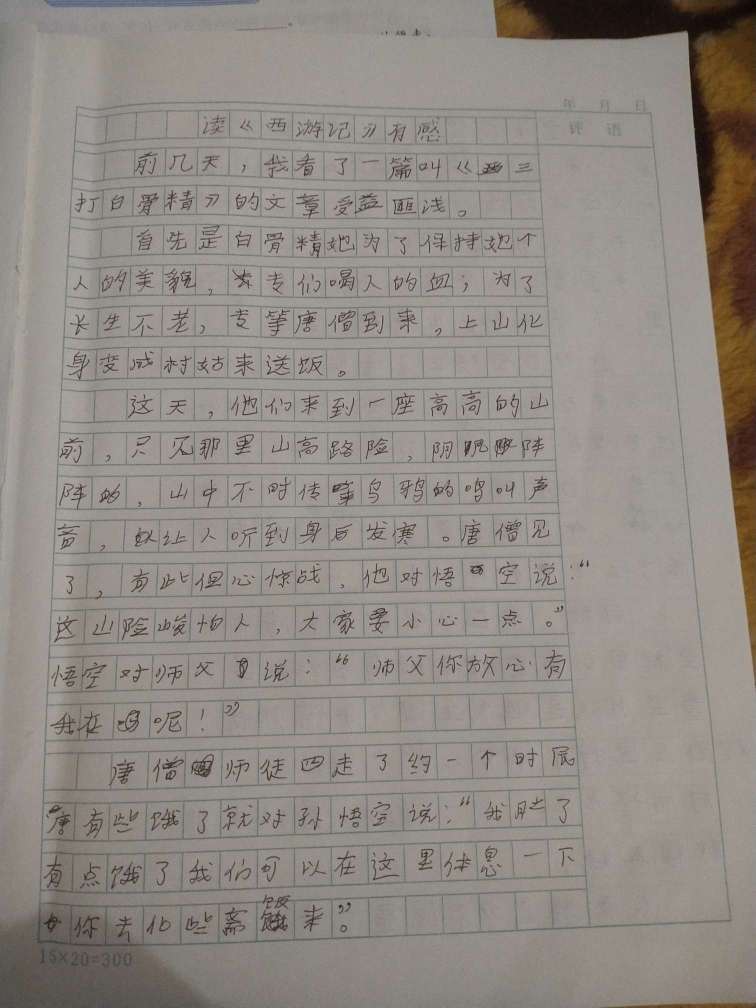 年 月 日
评 语
读《西游记》有感
前几天，我看了一篇叫《三
打白骨精》的文章受益匪浅。
首先是白骨精她为了保持她个
人的美貌，专们喝人的血；为了
长生不老，专等唐僧到来，上山化
身变成村姑来送饭。
这天，他们来到一座高高的山
前，只见那里山高路险，阴阵
阵的，山中不时传乌鸦的鸣叫声
音，让人听到身后发寒。唐僧见
了，有些但心惊战，他对悟空说：“
这山险峻怕人，大家要小心一点。”
悟空对师父说：“师父你放心有
我在呢！”
唐僧师徒四走了约一个时辰
唐有些饿了就对孙悟空说：“我肚了
有点饿了我们可以在这里休息一下
你去化些斋饭来。”
15×20=300